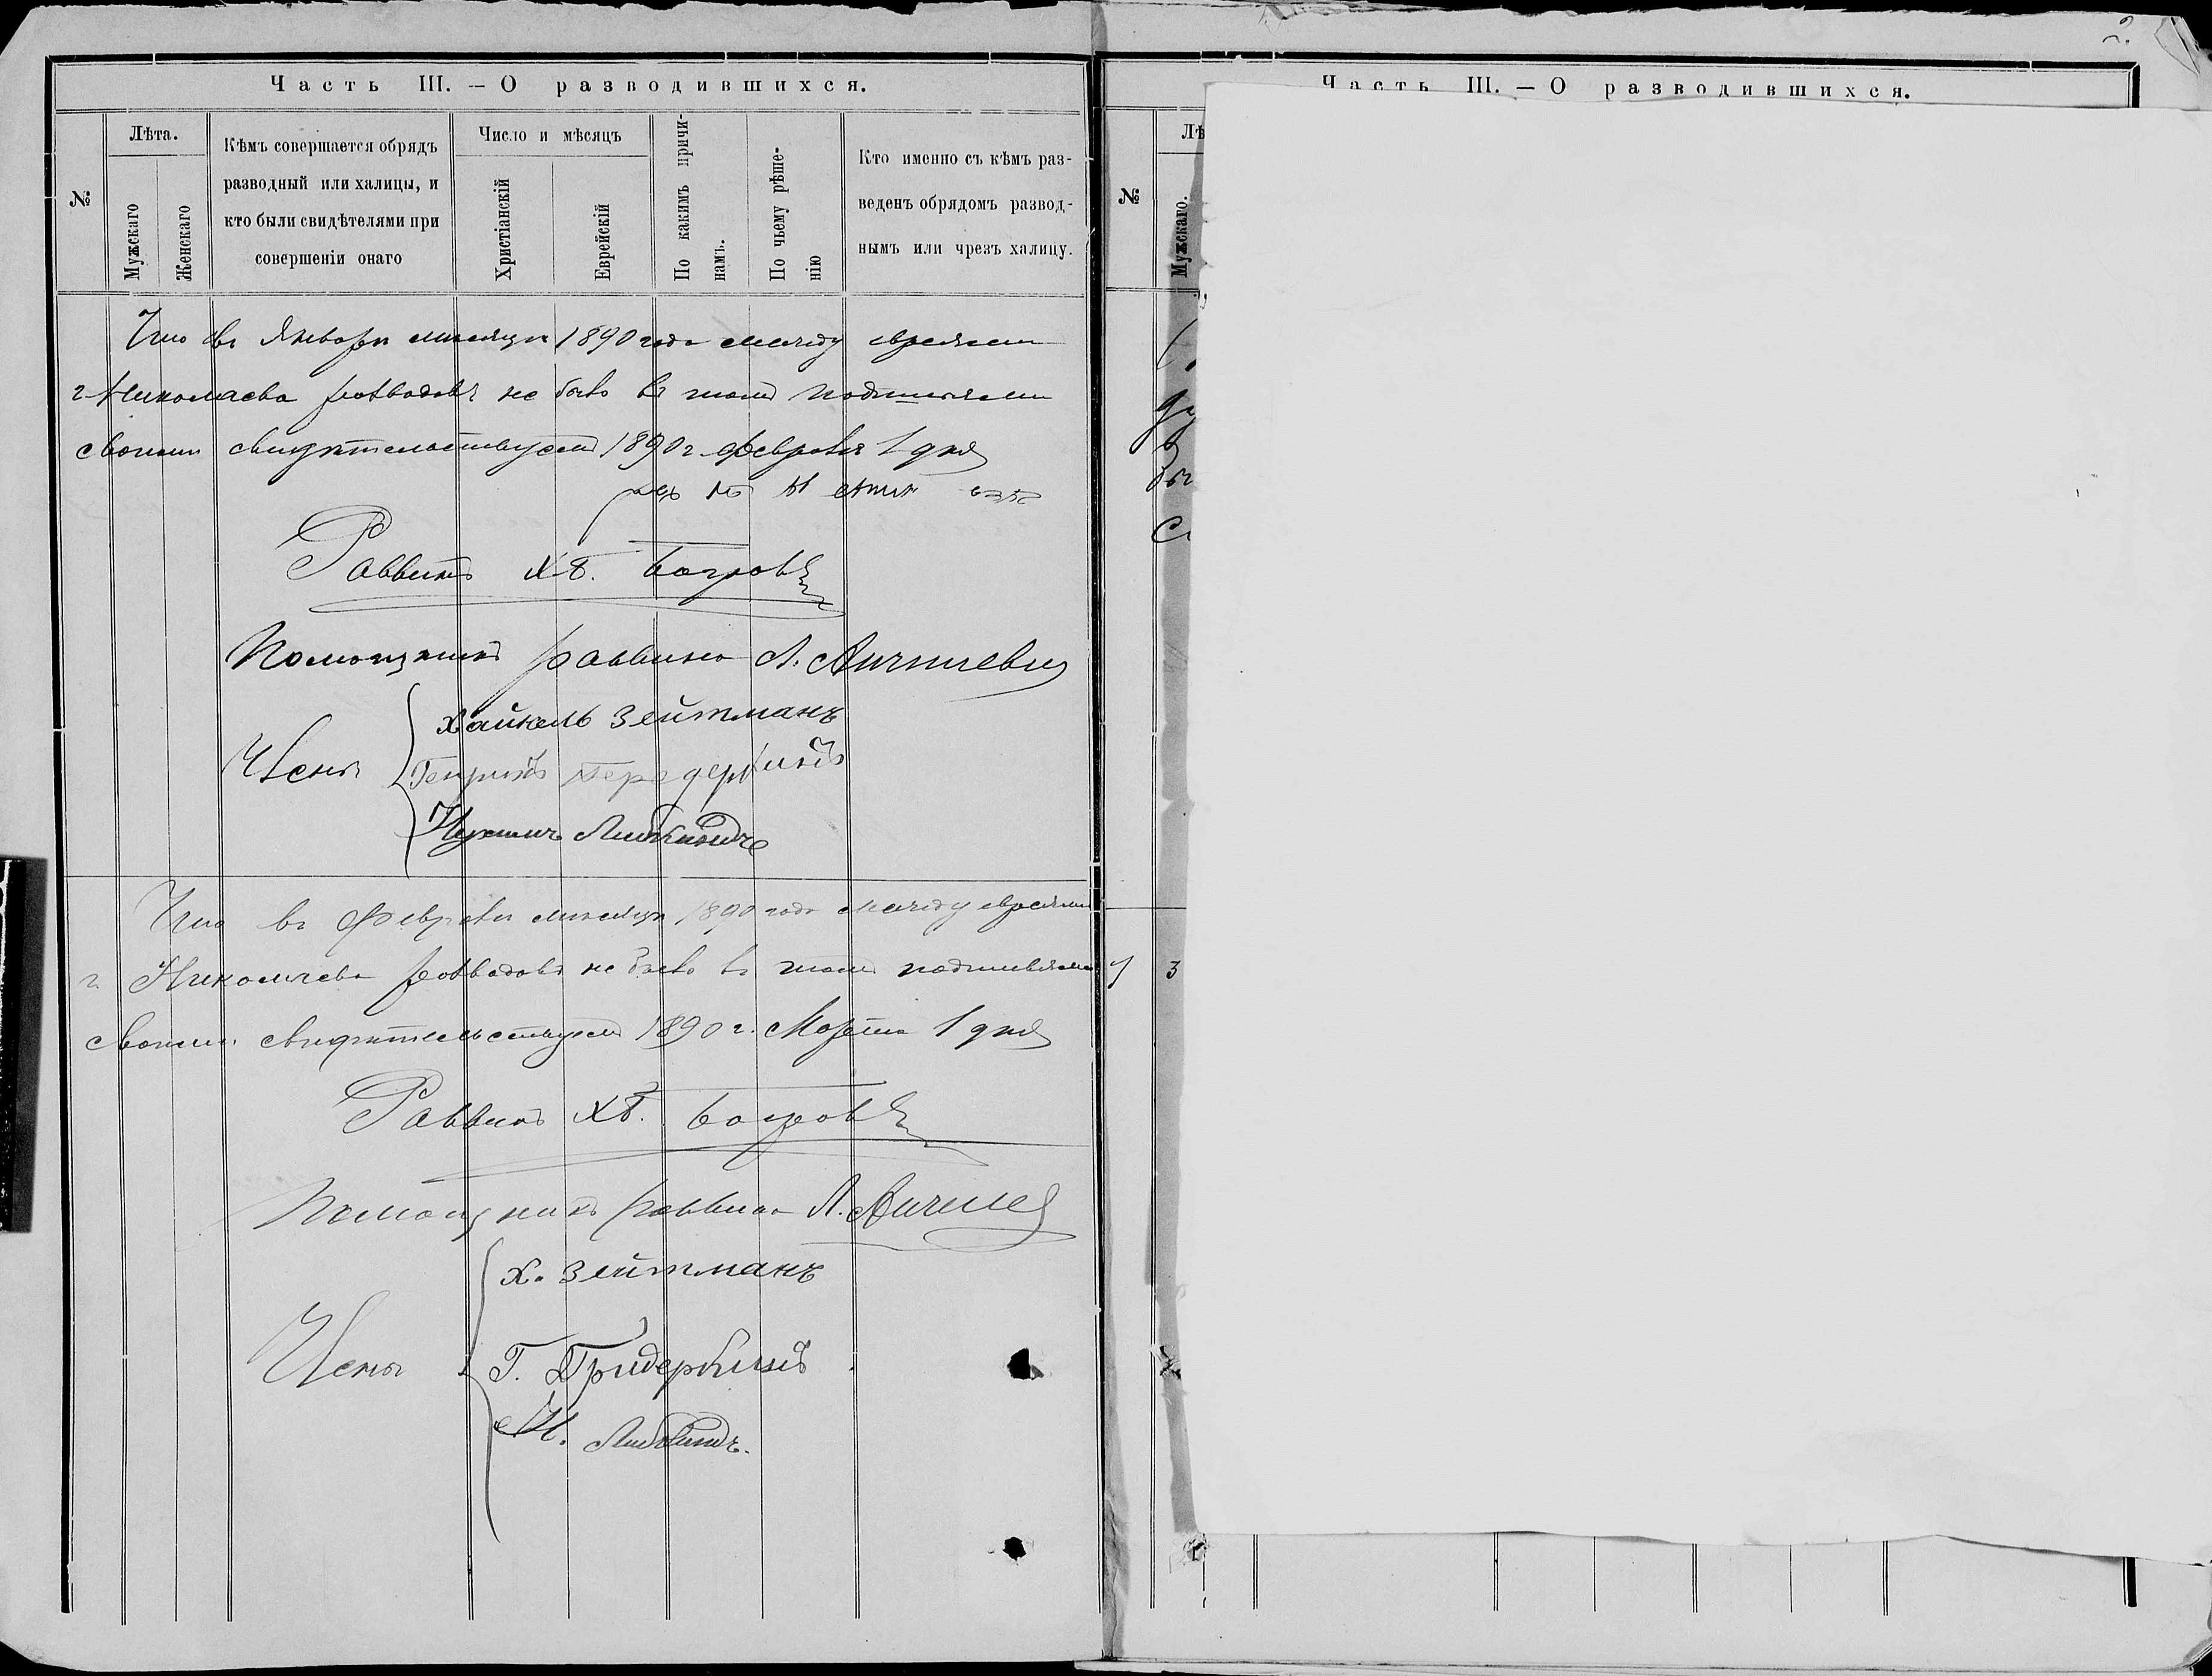 Часть III. — О разводившихся.
№
Лѣта.
Мужскаго
Женскаго
Кѣмъ совершается обрядъ
разводный или халицы, и
кто были свидѣтелями при
совершеніи онаго
Число и мѣсяцъ
Христіанскій
Еврейскій
По какимъ причи-
намъ.
По чьему рѣше-
нію
Кто именно съ кѣмъ раз-
веденъ обрядомъ развод-
нымъ или чрезъ халицу.
Что въ Январѣ мѣсяцѣ 1890 года между евреями
г. Николаева разводовъ не было въ томъ подписями
своими свидѣтельствуемъ 1890 г. Февраля 1 дня
Раввинъ Х.Б. Богровъ
Помощникъ раввина Л.
Хайкель Зейтманъ
Члены
Генрихъ
Либкиндъ
Что въ Февралѣ мѣсяцѣ 1890 года между евреями
г. Николаева разводовъ не было въ томъ подписями
своими свидѣтельствуемъ 1890 г. Марта 1 дня
Раввинъ ХБ. Богровъ
Помощникъ раввина Л.
Х. Зейтманъ
Члены
Г.
Н. Либкиндъ.
2.
Часть III. — О разводившихся.
№
Лѣ
Мужскаго.
1 3